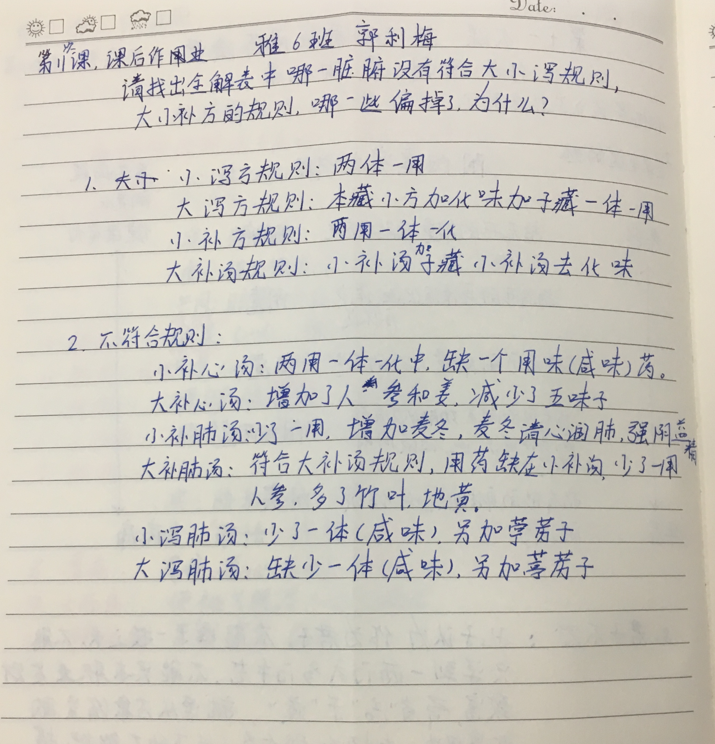 Date: . .
第11课,课后作用业 雅6班 郭利梅
请找出全解表中哪一脏腑没有符合大小泻规则,
大小补方的规则,哪一些偏掉了,为什么?
1. 小泻方规则:两体一用
大泻方规则:本藏小方加化味加子藏一体一用
小补方规则:两用一体一化
大补汤规则:小补汤加子藏小补汤去化味
2. 不符合规则:
小补心汤:两用一体一化中,缺一个用味(咸味)药。
大补心汤:增加了人参和姜,减少了五味子
小补肺汤:少了一用,增加麦冬,麦冬清心润肺,强阴益精
大补肺汤:符合大补汤规则,用药缺在小补汤,少了一用
人参,多了竹叶,地黄。
小泻肺汤:少了一体(咸味),另加葶苈子
大泻肺汤:缺少一体(咸味),另加葶苈子